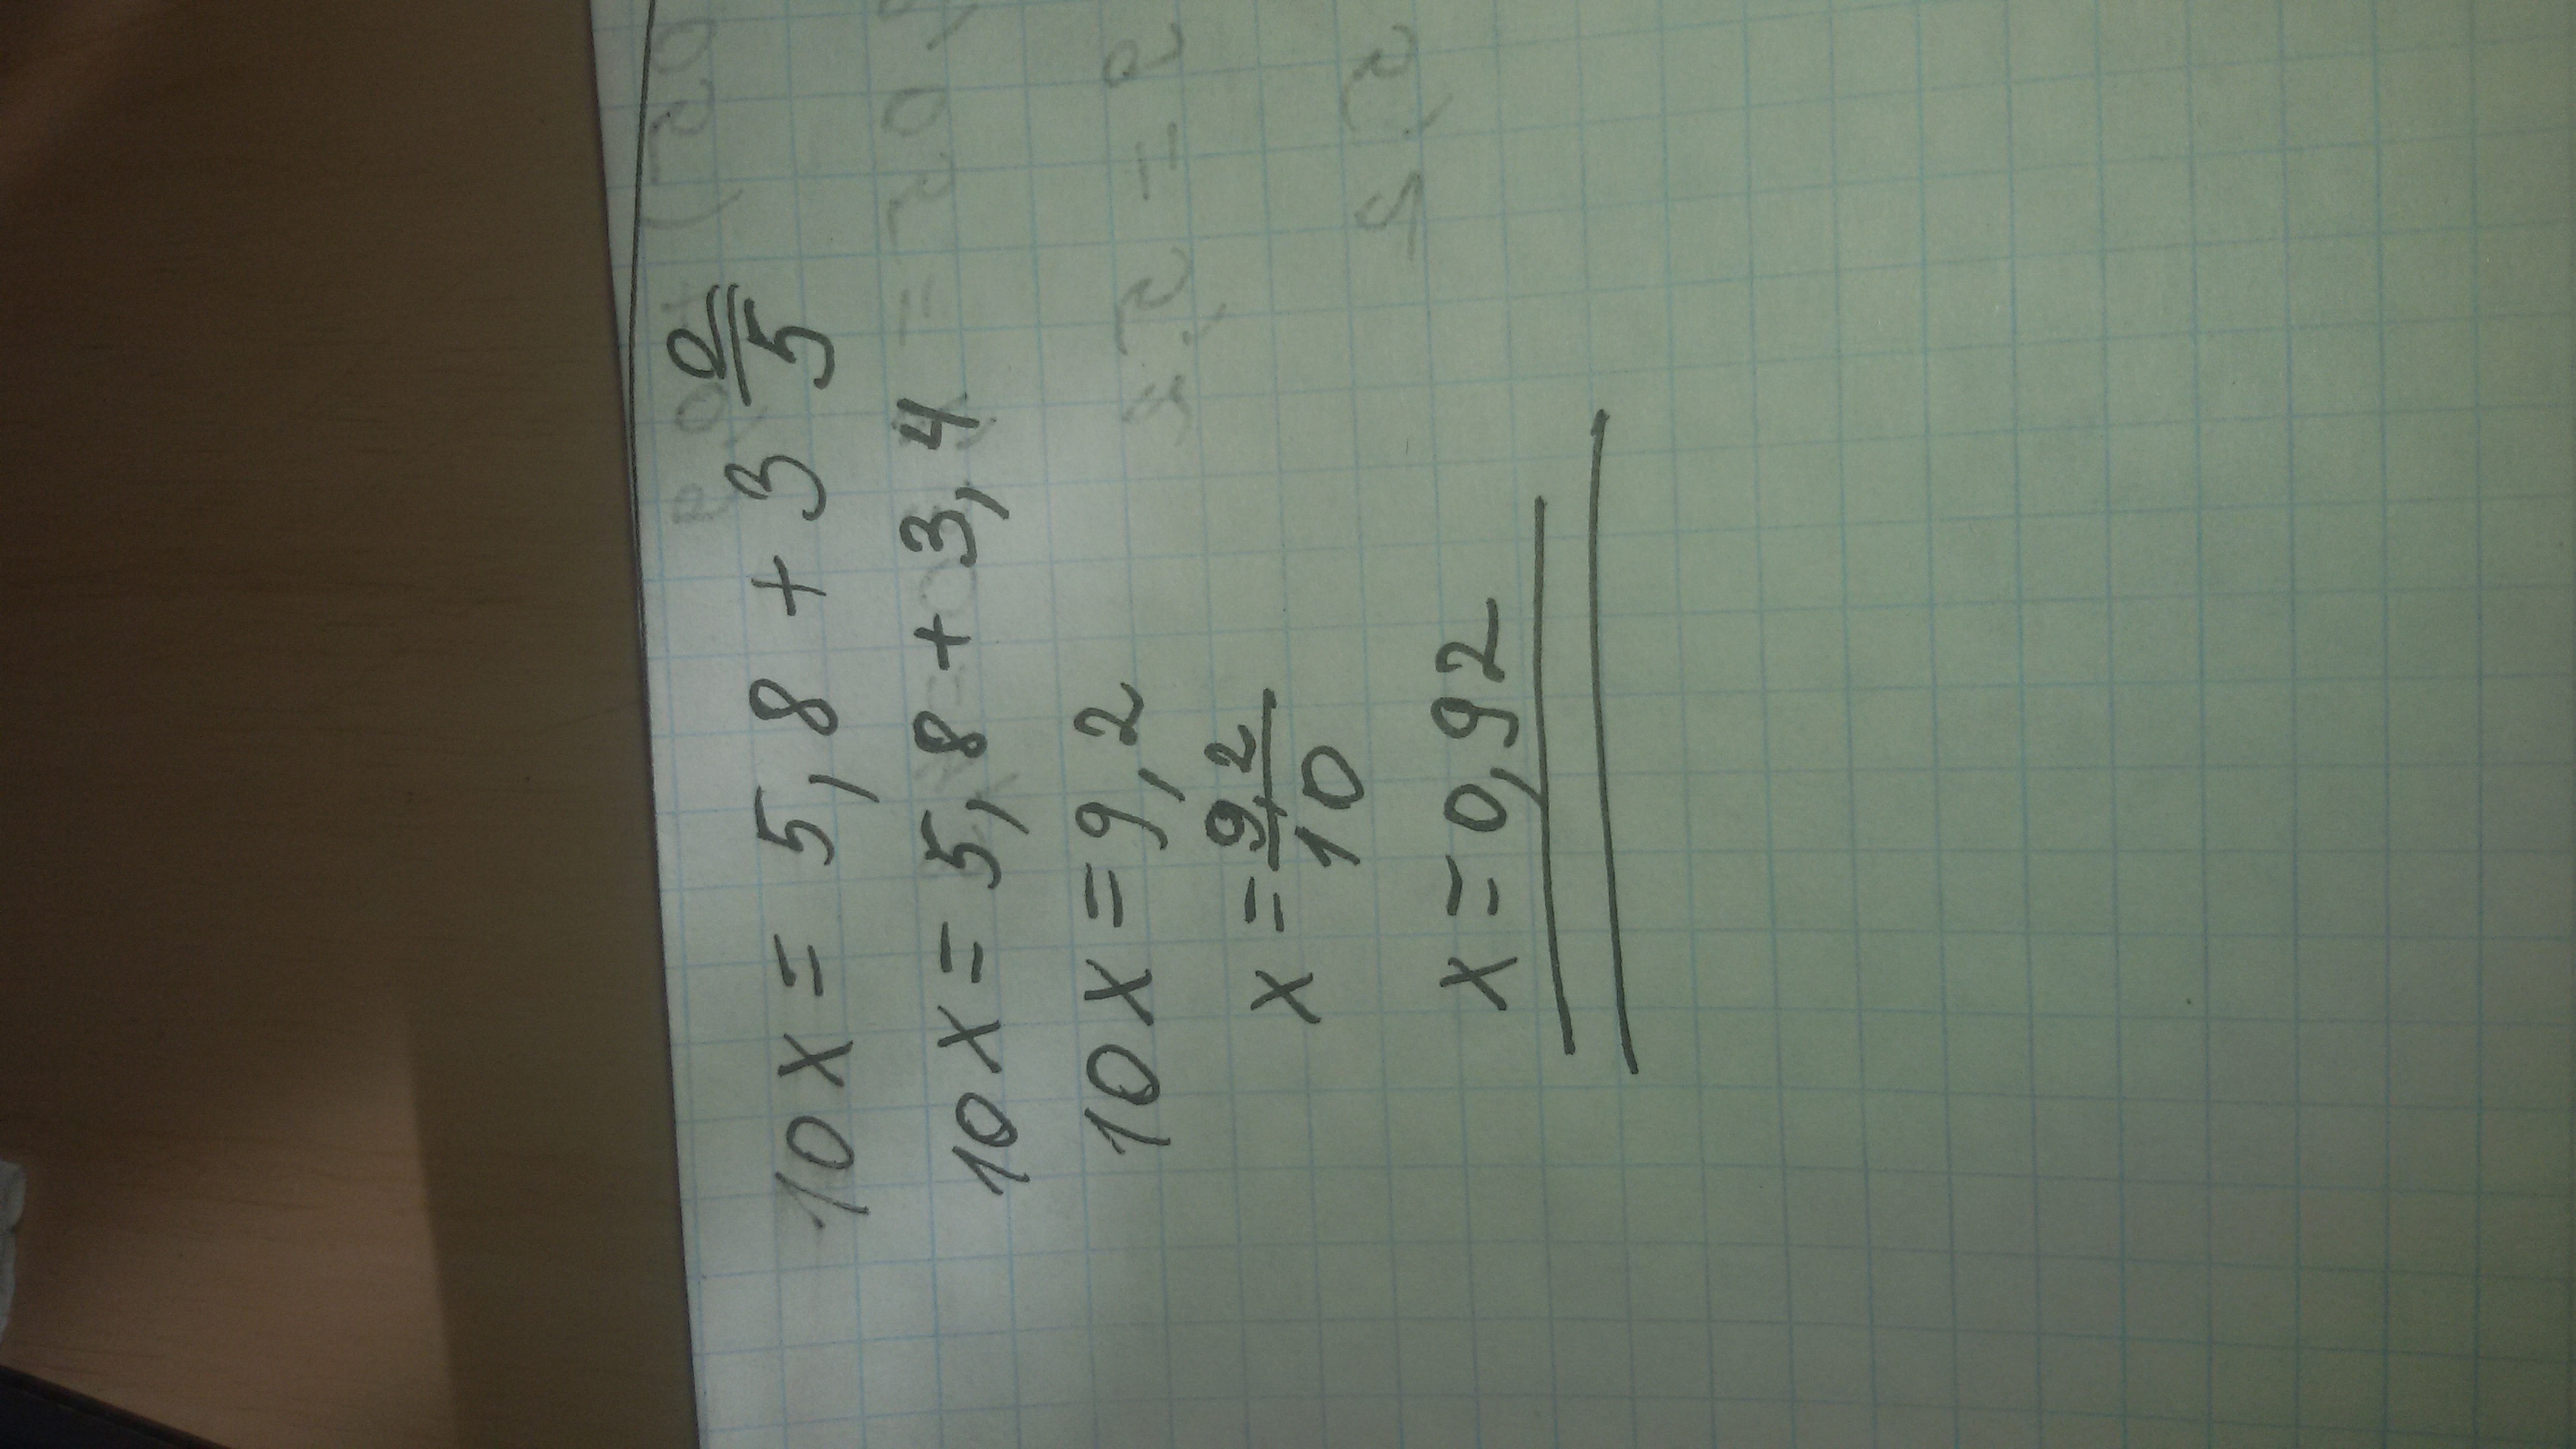 10x = 5,8 + 3 2/5
10x = 5,8 + 3,4
10x = 9,2
x = 9,2/10
x = 0,92